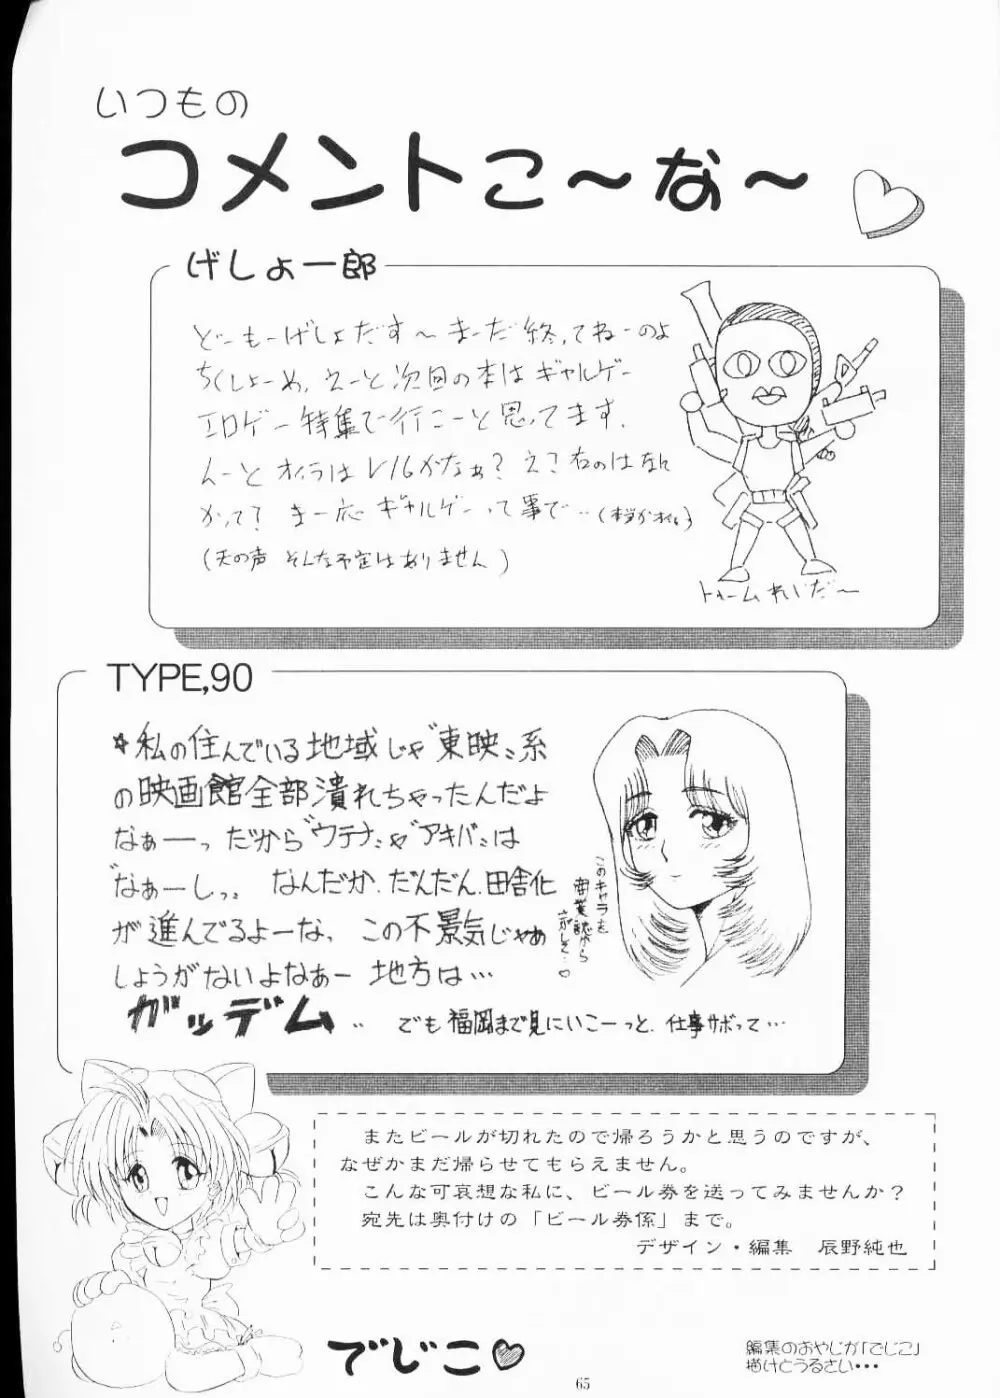 いつもの
コメントこ～な～
げしょ一郎
どーもーげしょだす～まーだ終ってねーのよ
ちくしょーめ、えーと次回の本はギャルゲー
エロゲー特集で行こーと思ってます。
んーとオイラはレイルかなぁ? え? 右のはなん
かって? まー応ギャルゲーって事で‥
(天の声 そんな予定はありません)
トゥームれいだ～
TYPE,90
＊私の住んでいる地域じゃ“東映”系
の映画館全部潰れちゃったんだよ
なぁーっ だから“ウテナ”や“アキバ”は
“なぁーしっ。 なんだか、だんだん、田舎化
が進んでるよーな、 この不景気じゃぁ
しょうがないよなぁー 地方は…
ガッデム‥ でも福岡まで見にいこーっと、仕事サボって…
このキャラを
商業誌から
さがしそ…♡
またビールが切れたので帰ろうかと思うのですが、
なぜかまだ帰らせてもらえません。
こんな可哀想な私に、ビール券を送ってみませんか?
宛先は奥付けの「ビール券係」まで。
デザイン・編集 辰野純也
でじこ♡
編集のおやじが「でじこ」
描けとうるさい・・・
65